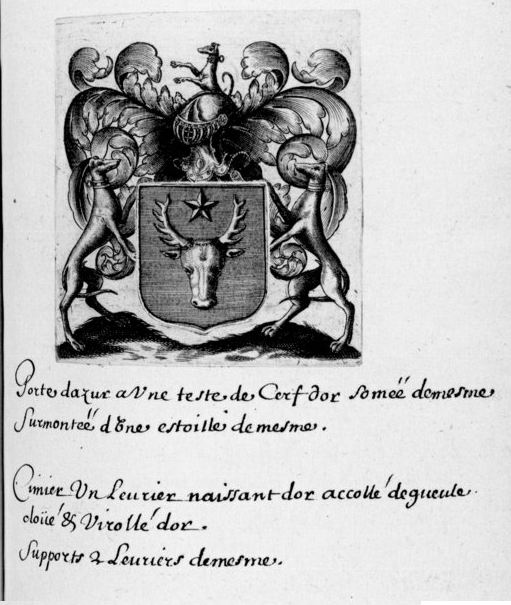 Porte dazur a Vne teste de Cerf dor soméé demesme
Surmontéé d'Vne estoille demesme.
Cimier Vn Leurier naissant dor accollé degueule.
cloüé & Virollé dor.
Supports 2 Leuriers demesme.